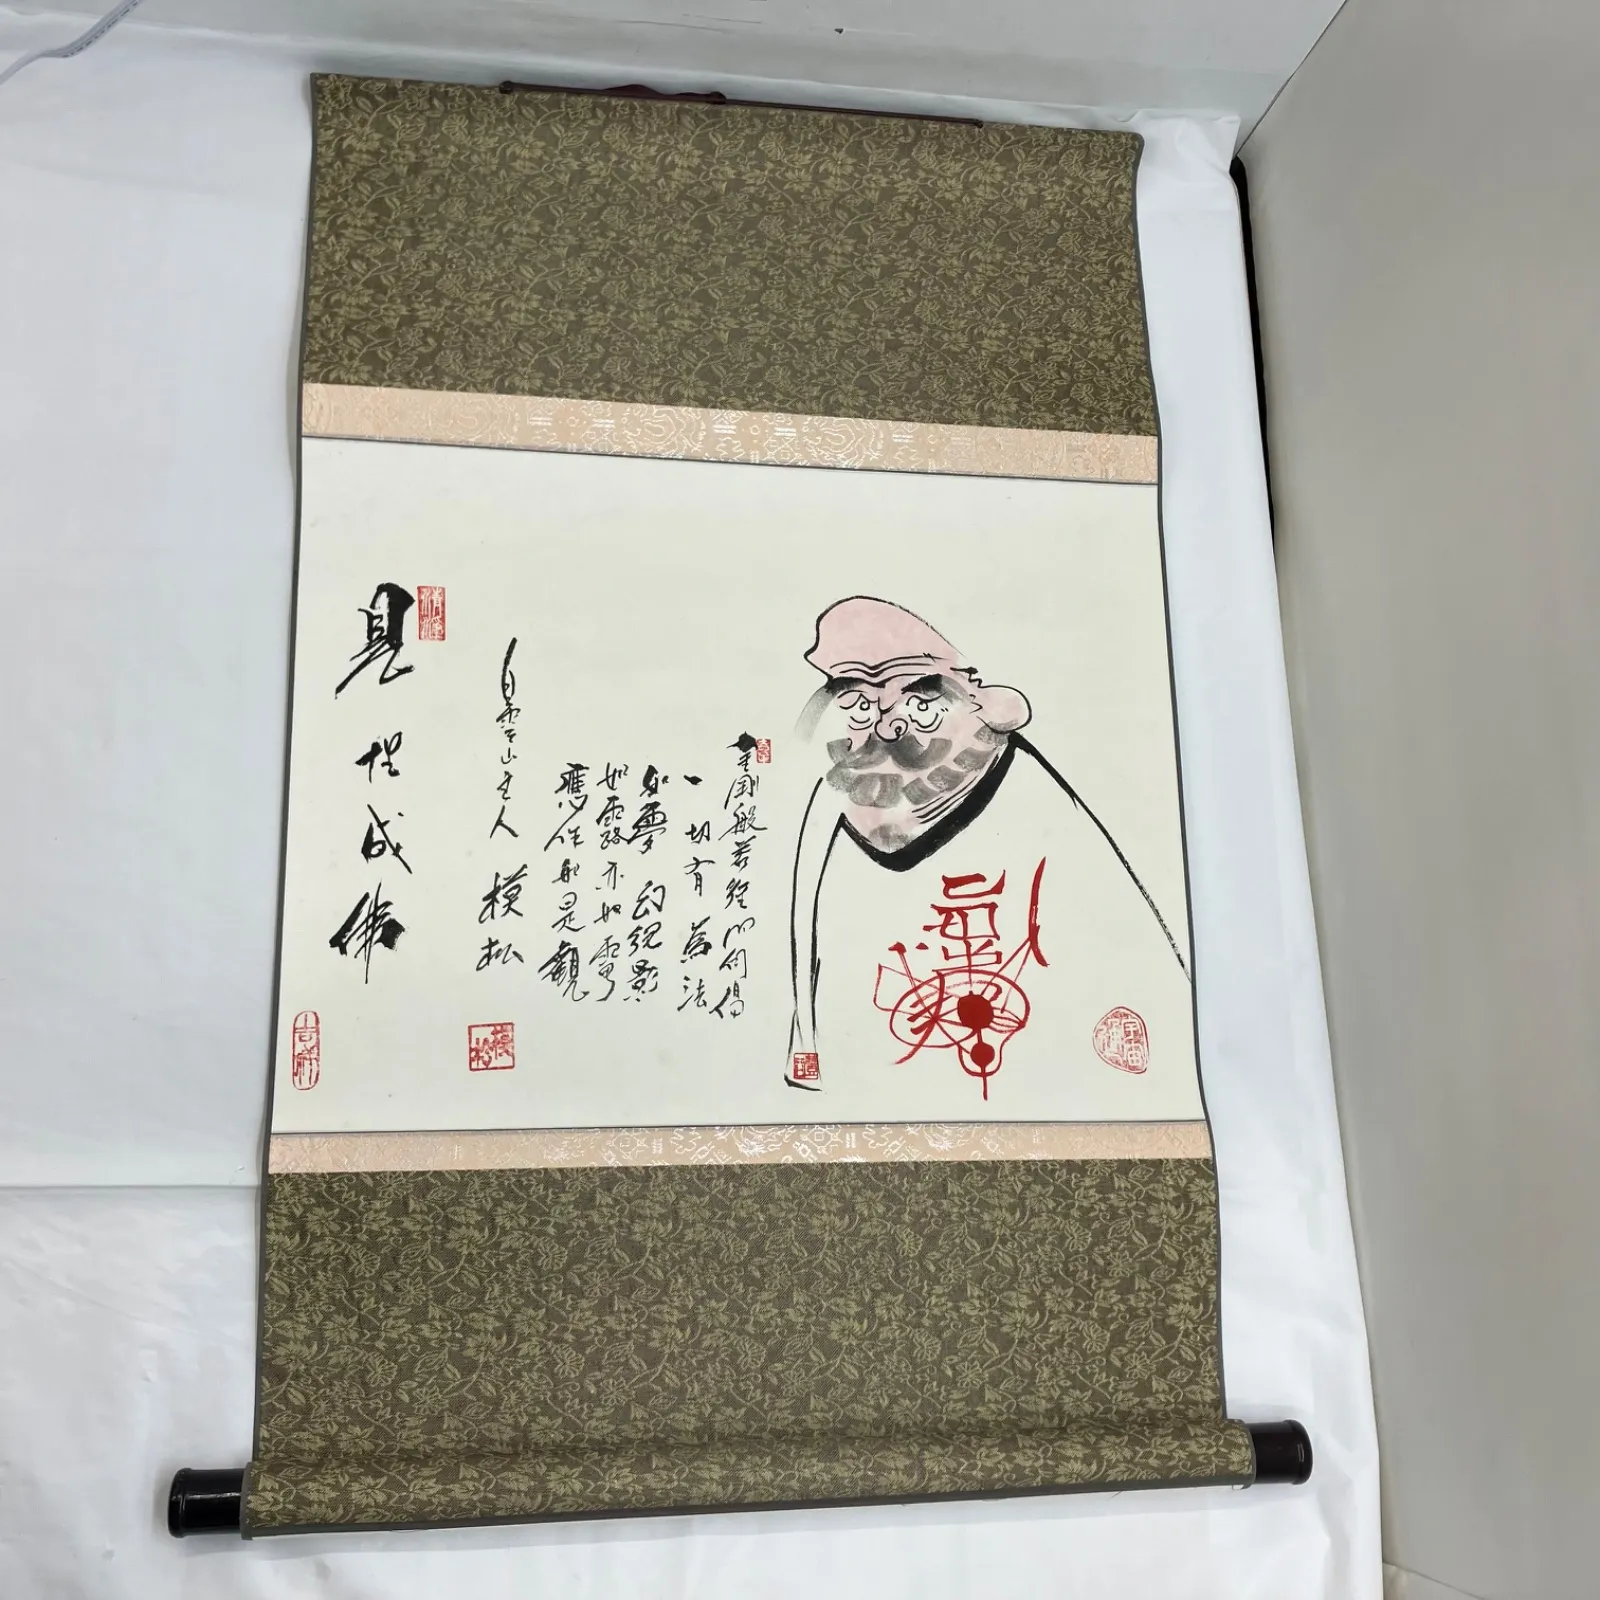 金剛般若經四句偈
一切有為法
如夢幻泡影
如露亦如電
應作如是觀
白雲山主人 模松
見性成佛
模松
吉祥